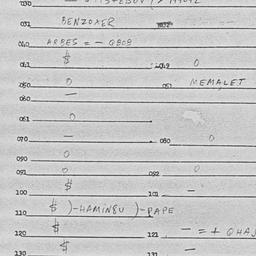 031 BENZOMER
040 ARBES = - QBOB
041 $ 049 0
050 0 051 MEMALET
060 —
061 0
070 — 080 0
090 0
091 0 092 0
100 $ 101 —
110 $ )-HAMINGU )-PAPE
120 $ 121 — = + QHAJ
130 $ 131 —